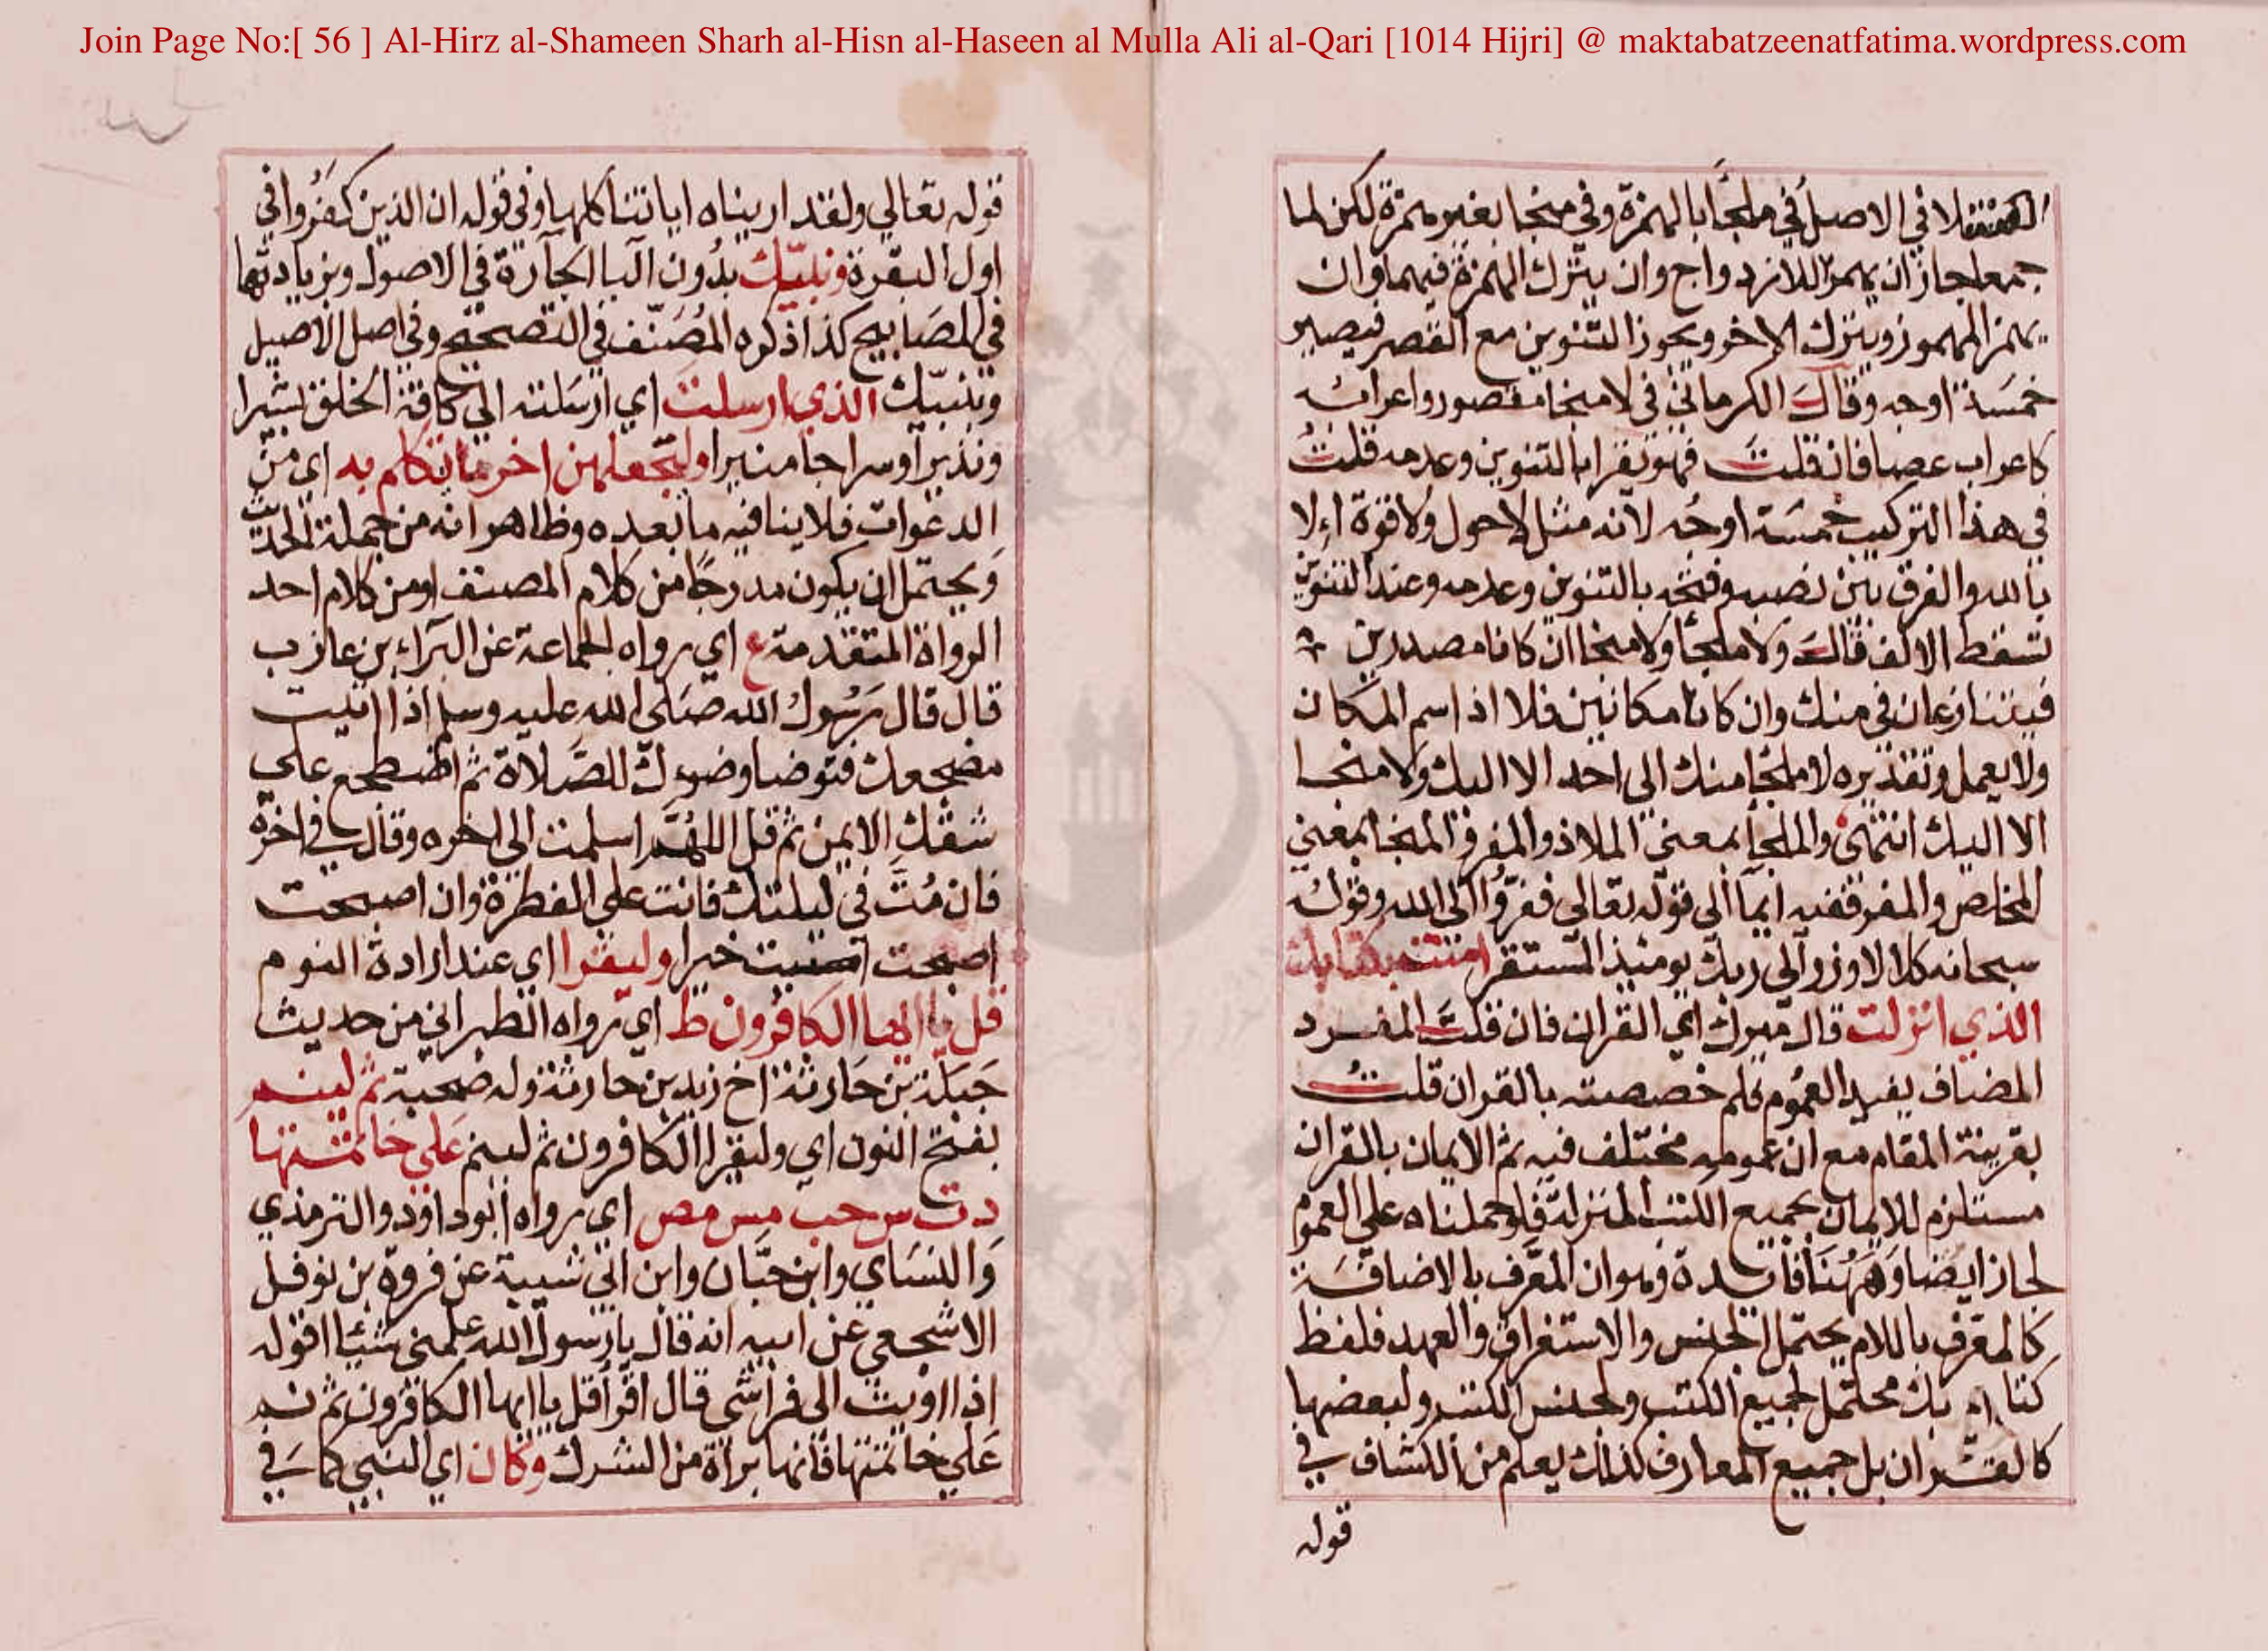 Join Page No:[ 56 ] Al-Hirz al-Shameen Sharh al-Hisn al-Haseen al Mulla Ali al-Qari [1014 Hijri] @ maktabatzeenatfatima.wordpress.com
لا في الاصل في ملجأ بالهمزة وفي منجا بغير همزة لكن لما
جمعا جاز ان يهمز للازدواج وان يترك الهمزة فيهما وان
يهمز المهموز ويترك الاخر ويجوز التنوين مع القصر فيصير
خمسة اوجه وقال الكرماني في لا منجا مقصور واعرابه
كاعراب عصا فان قلت فهو تقرا بالتنوين وعدمه قلت
في هذا التركيب خمسة اوجه لانه مثل لا حول ولا قوة الا
بالله والفرق بين نصبه وفتحه بالتنوين وعدمه وعند التنوين
تسقط الالف قال ولا ملجأ ولا منجا ان كانا مصدرين
فيتنازعان في منك وان كانا مكانين فلا اذ اسم المكان
ولا يعمل وتقديره لا ملجأ منك الى احد الا اليك ولا منجا
الا اليك انتهى والملجأ بمعنى الملاذ والمفر والمنجا بمعنى
المخلص والمفر ففيه ايما الى قوله تعالى ففروا الى الله وقوله
سبحانه كلا لا وزر الى ربك يومئذ المستقر امنت بكتابك
الذي انزلت قال ميرك اي القران فان قلت المفرد
المضاف يفيد العموم فلم خصصته بالقران قلت
بقرينة المقام مع ان عمومه مختلف فيه ثم الايمان بالقران
مستلزم للايمان بجميع الكتب المنزلة فلو حملناه على العموم
لجاز ايضا وههنا فائدة وهو ان المعرف بالاضافة
كالمعرف باللام يحتمل الجنس والاستغراق والعهد فلفظ
كتابك محتمل لجميع الكتب ولجنس الكتب ولبعضها
كالقران بل جميع المعارف كذلك يعلم من الكشاف في
قوله
قوله تعالي ولقد اريناه اياتنا كلها وفي قوله ان الذين كفروا في
اول البقرة ونبيك بدون البا الجارة في الاصول وبزيادتها
في المصابيح كذا ذكره المصنف في التصحيح وفي اصل الاصيل
وبنبيك الذي ارسلت اي ارسلته الي كافة الخلق بشيرا
ونذيرا وسراجا منيرا وليجعلهن اخر ما تكلم به اي من
الدعوات فلا ينافيه ما بعده وظاهر انه من جملة الحديث
ويحتمل ان يكون مدرجا من كلام المصنف او من كلام احد
الرواة المتقدمة ع اي رواه الجماعة عن البراء بن عازب
قال قال رسول الله صلى الله عليه وسلم اذا اتيت
مضجعك فتوضا وضوءك للصلاة ثم اضطجع على
شقك الايمن ثم قل اللهم اسلمت الى اخره وقال في اخره
فان مت في ليلتك فانت على الفطرة وان اصبحت
اصبحت خيرا وليقرا اي عند ارادة النوم
قل يا ايها الكافرون ط اي رواه الطبراني من حديث
جبلة بن حارثة اخ زيد بن حارثة وله صحبة ثم لينم
بفتح النون اي وليقرا الكافرون ثم لينم علي خاتمتها
د ت س حب مس مص اي رواه ابوداود والترمذي
والنساي وابن حبان وابن ابي شيبة عن فروة بن نوفل
الاشجعي عن ابيه انه قال يا رسول الله علمني شيئا اقوله
اذا اويت الى فراشي قال اقرأ قل يا ايها الكافرون ثم نم
علي خاتمتها فانها براة من الشرك وكان اي النبي كما في